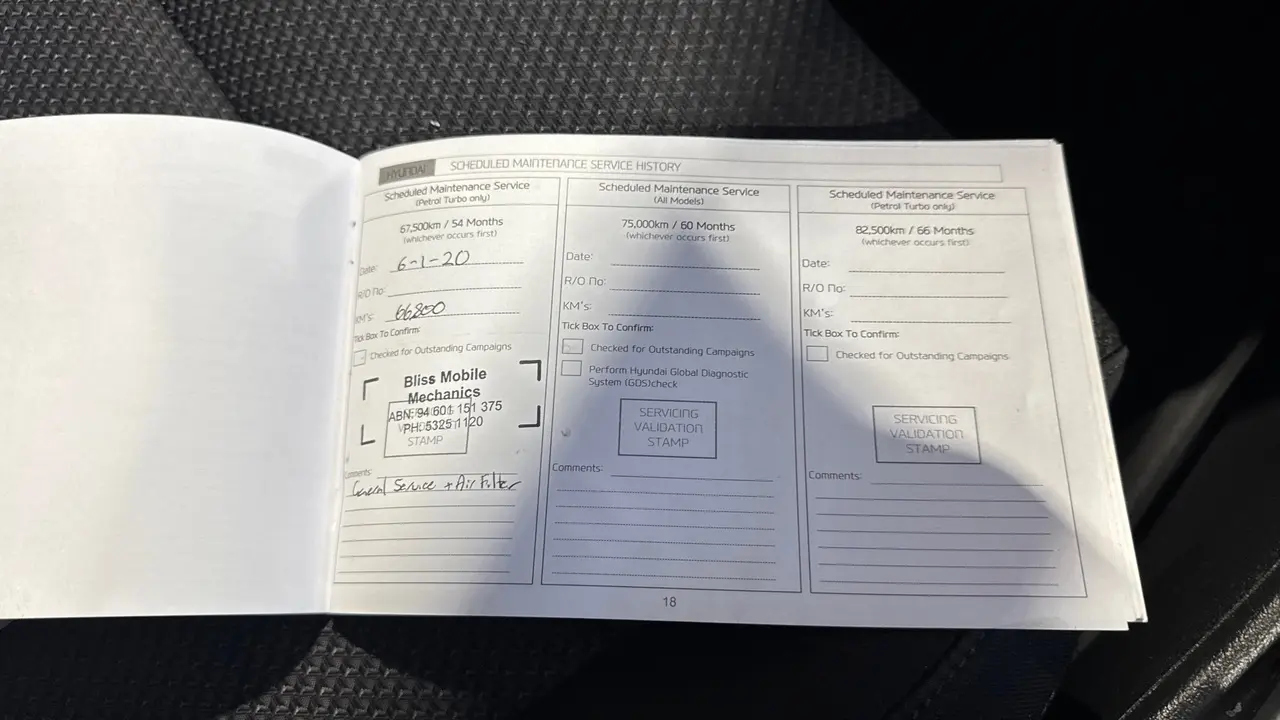 HYUNDAI SCHEDULED MAINTENANCE SERVICE HISTORY
Scheduled Maintenance Service
(Petrol Turbo only)
67,500km / 54 Months
(whichever occurs first)
Date: 6-1-20
R/O No:
KM's: 66,800
Tick Box To Confirm:
Checked for Outstanding Campaigns
Bliss Mobile
Mechanics
ABN: 94 601 151 375
PH: 5325 1120
STAMP
Comments:
General Service + Air Filter
Scheduled Maintenance Service
(All Models)
75,000km / 60 Months
(whichever occurs first)
Date:
R/O No:
KM's:
Tick Box To Confirm:
Checked for Outstanding Campaigns
Perform Hyundai Global Diagnostic
System (GDS)check
SERVICING
VALIDATION
STAMP
Comments:
Scheduled Maintenance Service
(Petrol Turbo only)
82,500km / 66 Months
(whichever occurs first)
Date:
R/O No:
KM's:
Tick Box To Confirm:
Checked for Outstanding Campaigns
SERVICING
VALIDATION
STAMP
Comments:
18